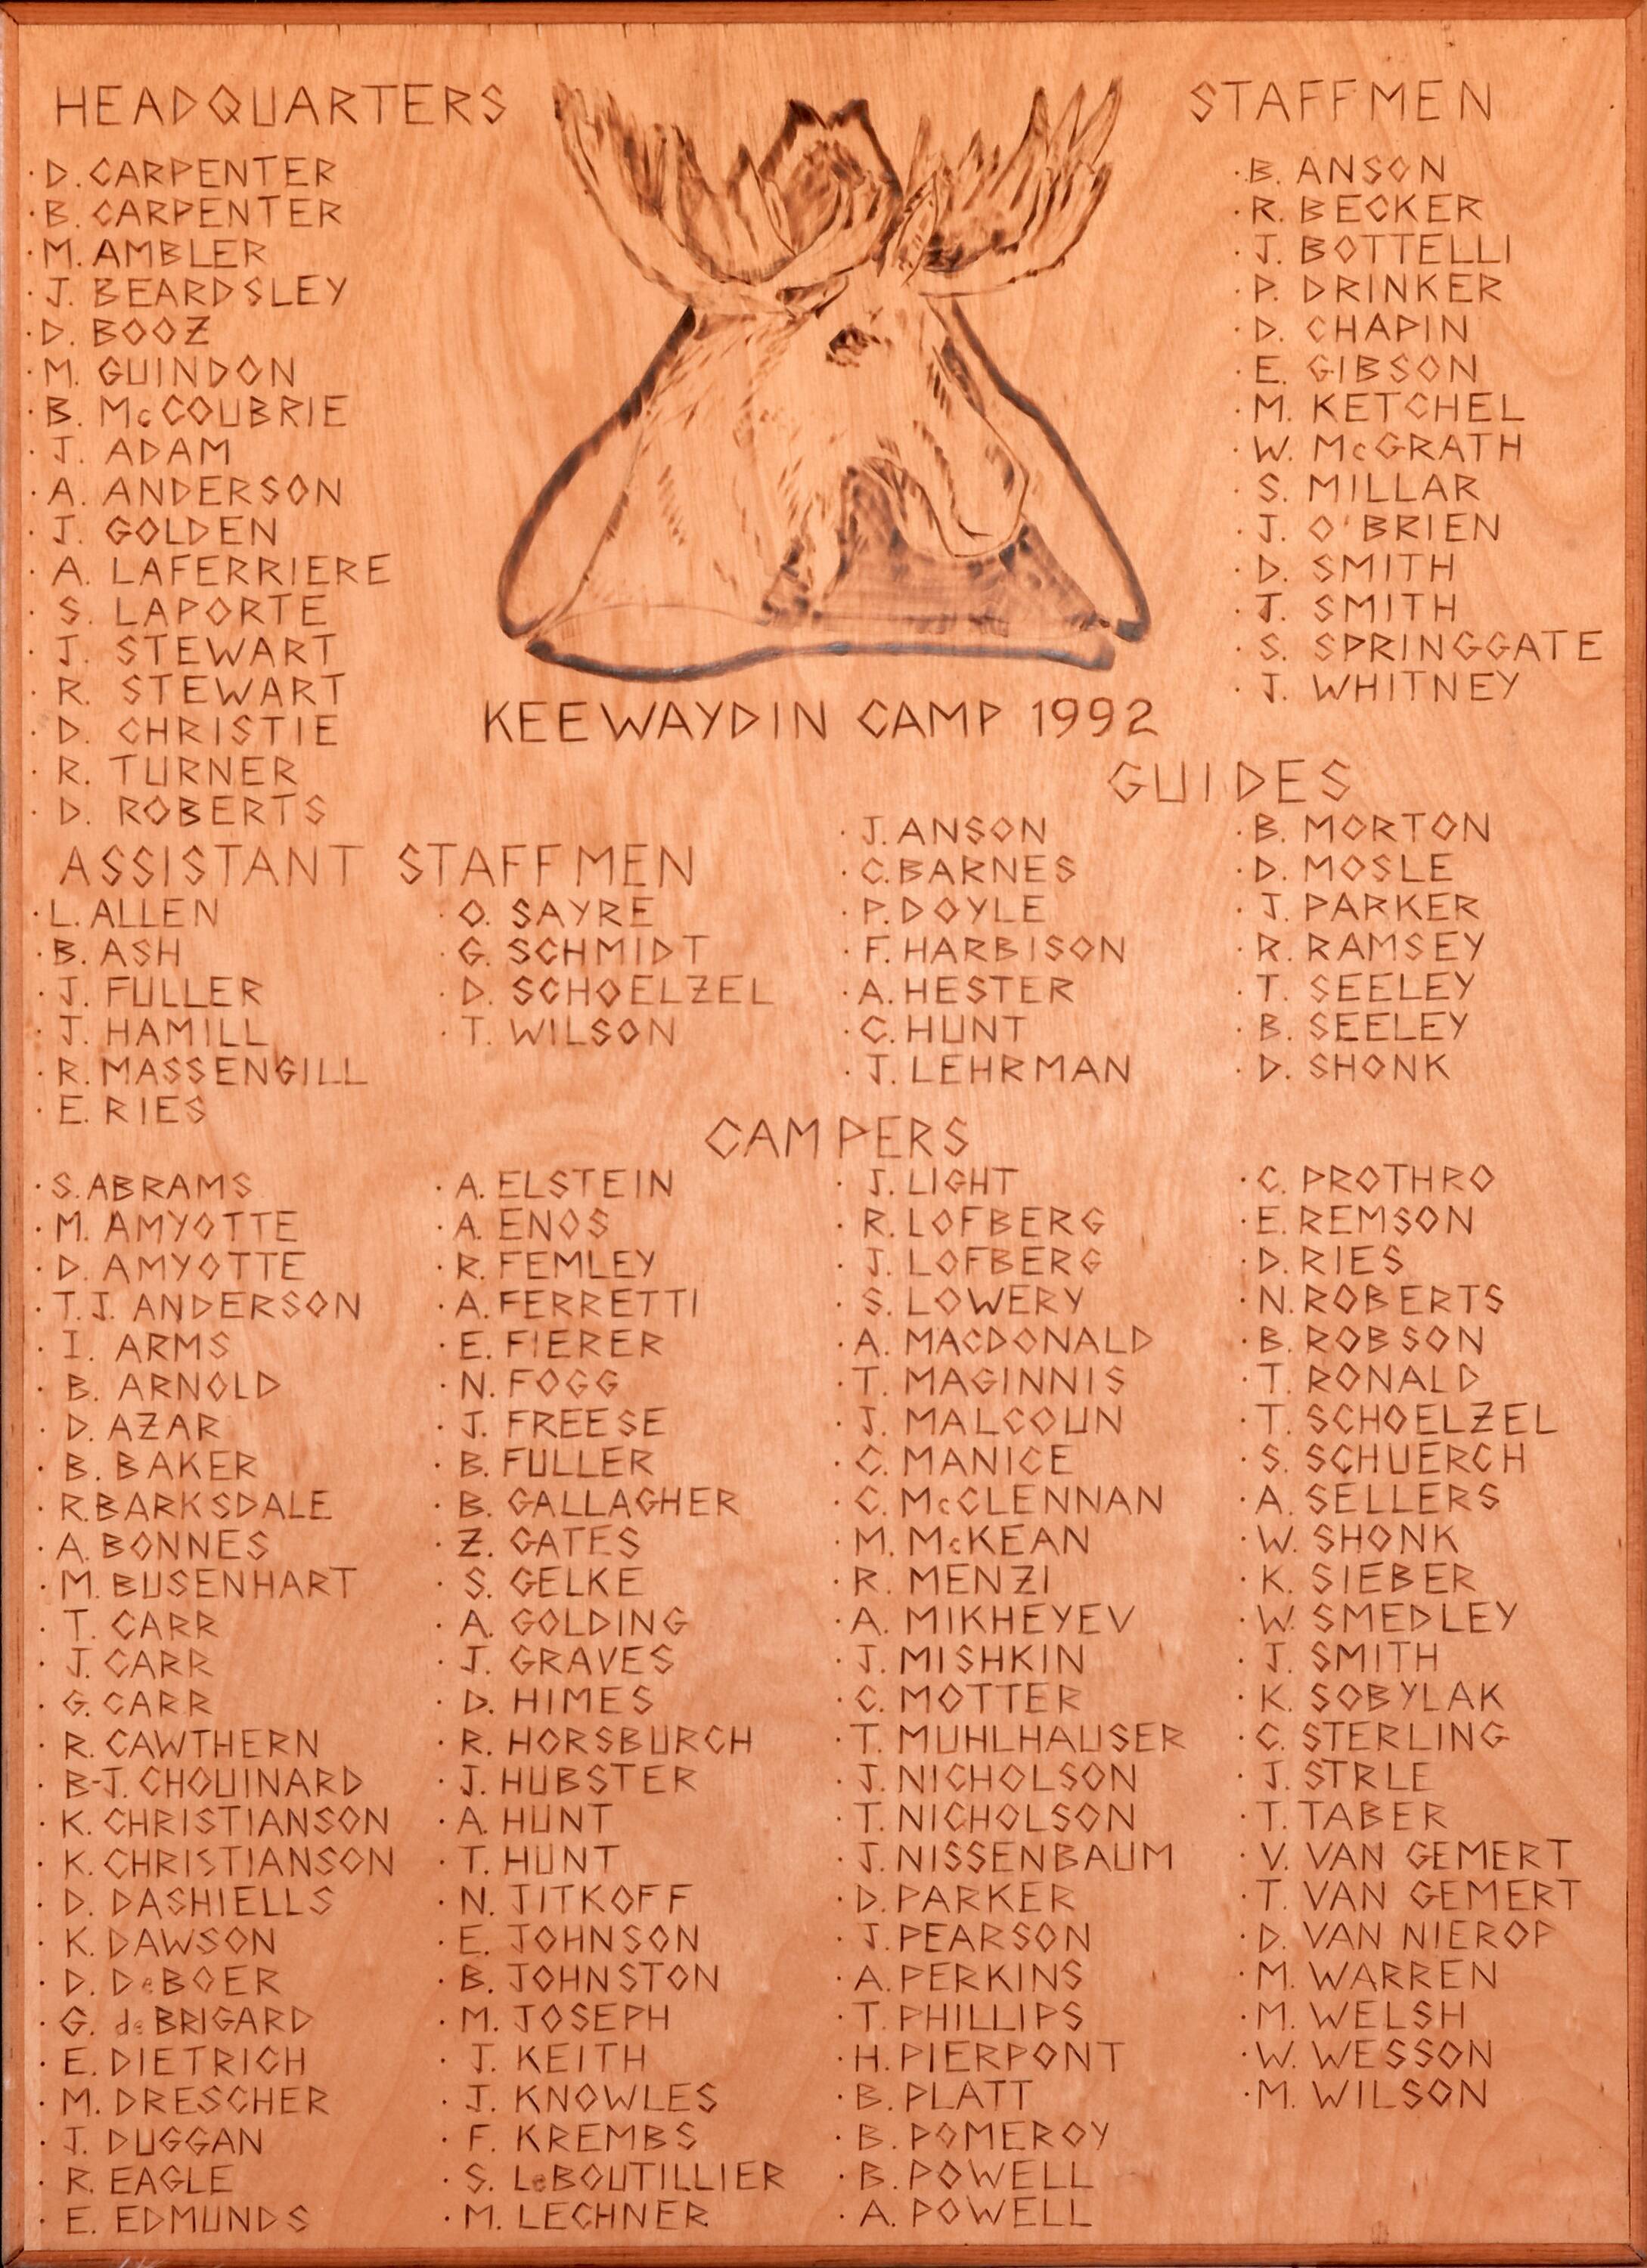 HEADQUARTERS
· D. CARPENTER
· B. CARPENTER
· M. AMBLER
· J. BEARDSLEY
· D. BOOZ
· M. GUINDON
· B. McCOUBRIE
· J. ADAM
· A. ANDERSON
· J. GOLDEN
· A. LAFERRIERE
· S. LAPORTE
· J. STEWART
· R. STEWART
· D. CHRISTIE
· R. TURNER
· D. ROBERTS
STAFFMEN
· B. ANSON
· R. BECKER
· J. BOTTELLI
· P. DRINKER
· D. CHAPIN
· E. GIBSON
· M. KETCHEL
· W. McGRATH
· S. MILLAR
· J. O'BRIEN
· D. SMITH
· J. SMITH
· S. SPRINGGATE
· J. WHITNEY
KEEWAYDIN CAMP 1992
ASSISTANT STAFFMEN
· L. ALLEN
· B. ASH
· J. FULLER
· J. HAMILL
· R. MASSENGILL
· E. RIES
· O. SAYRE
· G. SCHMIDT
· D. SCHOELZEL
· T. WILSON
GUIDES
· J. ANSON
· C. BARNES
· P. DOYLE
· F. HARBISON
· A. HESTER
· C. HUNT
· J. LEHRMAN
· B. MORTON
· D. MOSLE
· J. PARKER
· R. RAMSEY
· T. SEELEY
· B. SEELEY
· D. SHONK
CAMPERS
· S. ABRAMS
· M. AMYOTTE
· D. AMYOTTE
· T.J. ANDERSON
· I. ARMS
· B. ARNOLD
· D. AZAR
· B. BAKER
· R. BARKSDALE
· A. BONNES
· M. BUSENHART
· T. CARR
· J. CARR
· G. CARR
· R. CAWTHERN
· B-J. CHOUINARD
· K. CHRISTIANSON
· K. CHRISTIANSON
· D. DASHIELLS
· K. DAWSON
· D. DeBOER
· G. deBRIGARD
· E. DIETRICH
· M. DRESCHER
· J. DUGGAN
· R. EAGLE
· E. EDMUNDS
· A. ELSTEIN
· A. ENOS
· R. FEMLEY
· A. FERRETTI
· E. FIERER
· N. FOGG
· J. FREESE
· B. FULLER
· B. GALLAGHER
· Z. GATES
· S. GELKE
· A. GOLDING
· J. GRAVES
· D. HIMES
· R. HORSBURCH
· J. HUBSTER
· A. HUNT
· T. HUNT
· N. JITKOFF
· E. JOHNSON
· B. JOHNSTON
· M. JOSEPH
· J. KEITH
· J. KNOWLES
· F. KREMBS
· S. LeBOUTILLIER
· M. LECHNER
· J. LIGHT
· R. LOFBERG
· J. LOFBERG
· S. LOWERY
· A. MACDONALD
· T. MAGINNIS
· J. MALCOUN
· C. MANICE
· C. McCLENNAN
· M. McKEAN
· R. MENZI
· A. MIKHEYEV
· J. MISHKIN
· C. MOTTER
· T. MUHLHAUSER
· J. NICHOLSON
· T. NICHOLSON
· J. NISSENBAUM
· D. PARKER
· J. PEARSON
· A. PERKINS
· T. PHILLIPS
· H. PIERPONT
· B. PLATT
· B. POMEROY
· B. POWELL
· A. POWELL
· C. PROTHRO
· E. REMSON
· D. RIES
· N. ROBERTS
· B. ROBSON
· T. RONALD
· T. SCHOELZEL
· S. SCHUERCH
· A. SELLERS
· W. SHONK
· K. SIEBER
· W. SMEDLEY
· J. SMITH
· K. SOBYLAK
· C. STERLING
· J. STRLE
· T. TABER
· V. VAN GEMERT
· T. VAN GEMERT
· D. VAN NIEROP
· M. WARREN
· M. WELSH
· W. WESSON
· M. WILSON